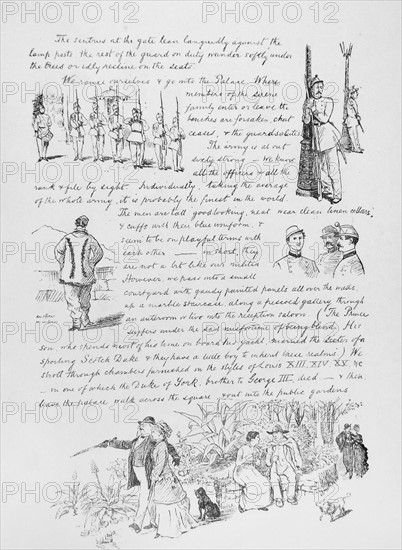 The sentries at the gate lean languidly against the
lamp posts the rest of the guard on duty wander softly under
the trees or idly recline on the seats
We rouse ourselves & go into the Palace. Where
members of the serene
family enter or leave the
benches are forsaken, chat
ceases, & the guard salutes
The army is about
sixty strong — we know
all the officers & all the
rank & file by sight. Individually, taking the average
of the whole army, it is probably the finest in the world.
The men are tall goodlooking, neat wear clean linen collars
& cuffs with their blue uniform, &
seem to be on playful terms with
each other — in short, they
are not a bit like our militia
However, we pass into a small
courtyard with gaudy painted panels all over the walls,
up a marble staircase along a frescoed gallery through
an anteroom or two into the reception saloon. (The Prince
suffers under the misfortune of being blind. His
son, who spends most of his time on board his yacht, married the sister of a
sporting Scotch Duke & they have a little boy to inherit these realms) We
stroll through chambers furnished in the styles of Louis XIII. XIV. XV. &c
— in one of which the Duke of York, brother to George III died — & then
leave the palace walk across the square & out into the public gardens
PHOTO12